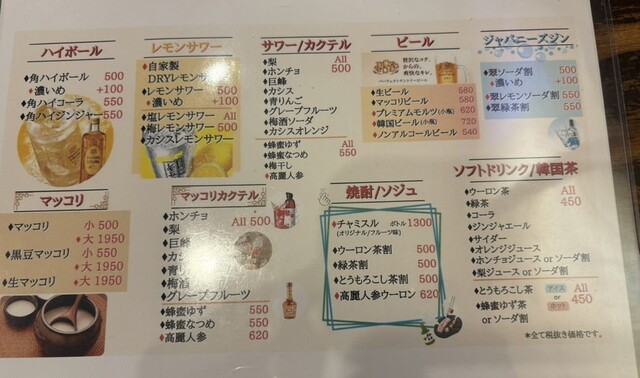 ハイボール
♦角ハイボール 500
♦濃いめ +100
♦角ハイコーラ 550
♦角ハイジンジャー 550
レモンサワー
♦自家製
DRYレモンサワー
♦レモンサワー 500
♦濃いめ +100
♦塩レモンサワー All
♦梅レモンサワー 500
♦カシスレモンサワー
サワー/カクテル
♦梨 All
♦ホンチョ 500
♦巨峰
♦カシス
♦青りんご
♦グレープフルーツ
♦梅酒ソーダ
♦カシスオレンジ
♦蜂蜜ゆず All
♦蜂蜜なつめ 550
♦梅干し
♦高麗人参
ビール
贅沢なコク、
からの、
爽快なキレ。
♦生ビール 580
♦マッコリビール 580
♦プレミアムモルツ(小瓶) 620
♦韓国ビール(小瓶) 720
♦ノンアルコールビール 540
ジャパニーズジン
♦翠ソーダ割 500
♦濃いめ +100
♦翠レモンソーダ割 550
♦翠緑茶割 550
マッコリ
♦マッコリ 小 500
♦大 1950
♦黒豆マッコリ 小 550
♦大 1950
♦生マッコリ ♦大 1950
マッコリカクテル
♦ホンチョ
♦梨 All 500
♦巨峰
♦青り
♦梅酒
♦グレープフルーツ
♦蜂蜜ゆず 550
♦蜂蜜なつめ 550
♦高麗人参 620
焼酎/ソジュ
♦チャミスル ボトル 1300
(オリジナル/フルーツ味)
♦ウーロン茶割 500
♦緑茶割 500
♦とうもろこし茶割 500
♦高麗人参ウーロン 620
ソフトドリンク/韓国茶
♦ウーロン茶 All
♦緑茶 450
♦コーラ
♦ジンジャエール
♦サイダー
♦オレンジジュース
♦ホンチョジュース or ソーダ割
♦梨ジュース or ソーダ割
♦とうもろこし茶 アイス All
or 450
♦蜂蜜ゆず茶 ホット
or ソーダ割
*全て税抜き価格です。